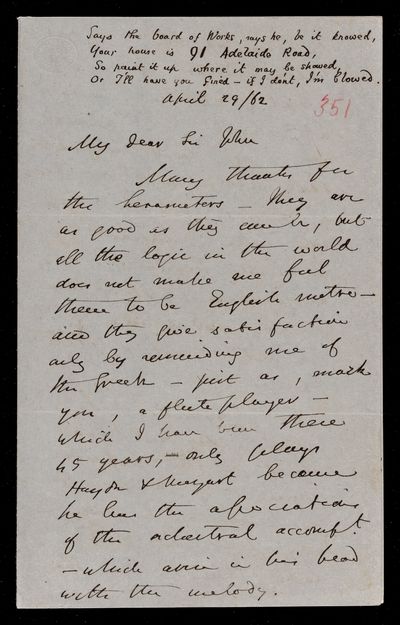 Says the board of Works, says he, be it knowed,
Your house is 91 Adelaide Road,
So paint it up where it may be showed,
Or I'll have you fined – if I dont, I'm blowed.
April 29/62
351
My dear Sir John
Many thanks for
the hexameters – They are
as good as they can be, but
all the logic in the world
does not make me feel
them to be English metre –
and they give satisfaction
only by reminding me of
the Greek – just as, mark
you, a flute player –
which I have been these
45 years, – only plays
Haydn & Mozart because
he has the associations
of the orchestral accompt.
– which arise in his head
with the melody.